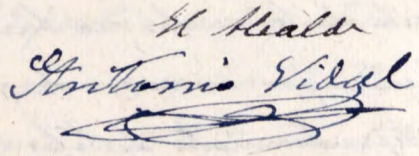 El Alcalde
Antonio Vidal